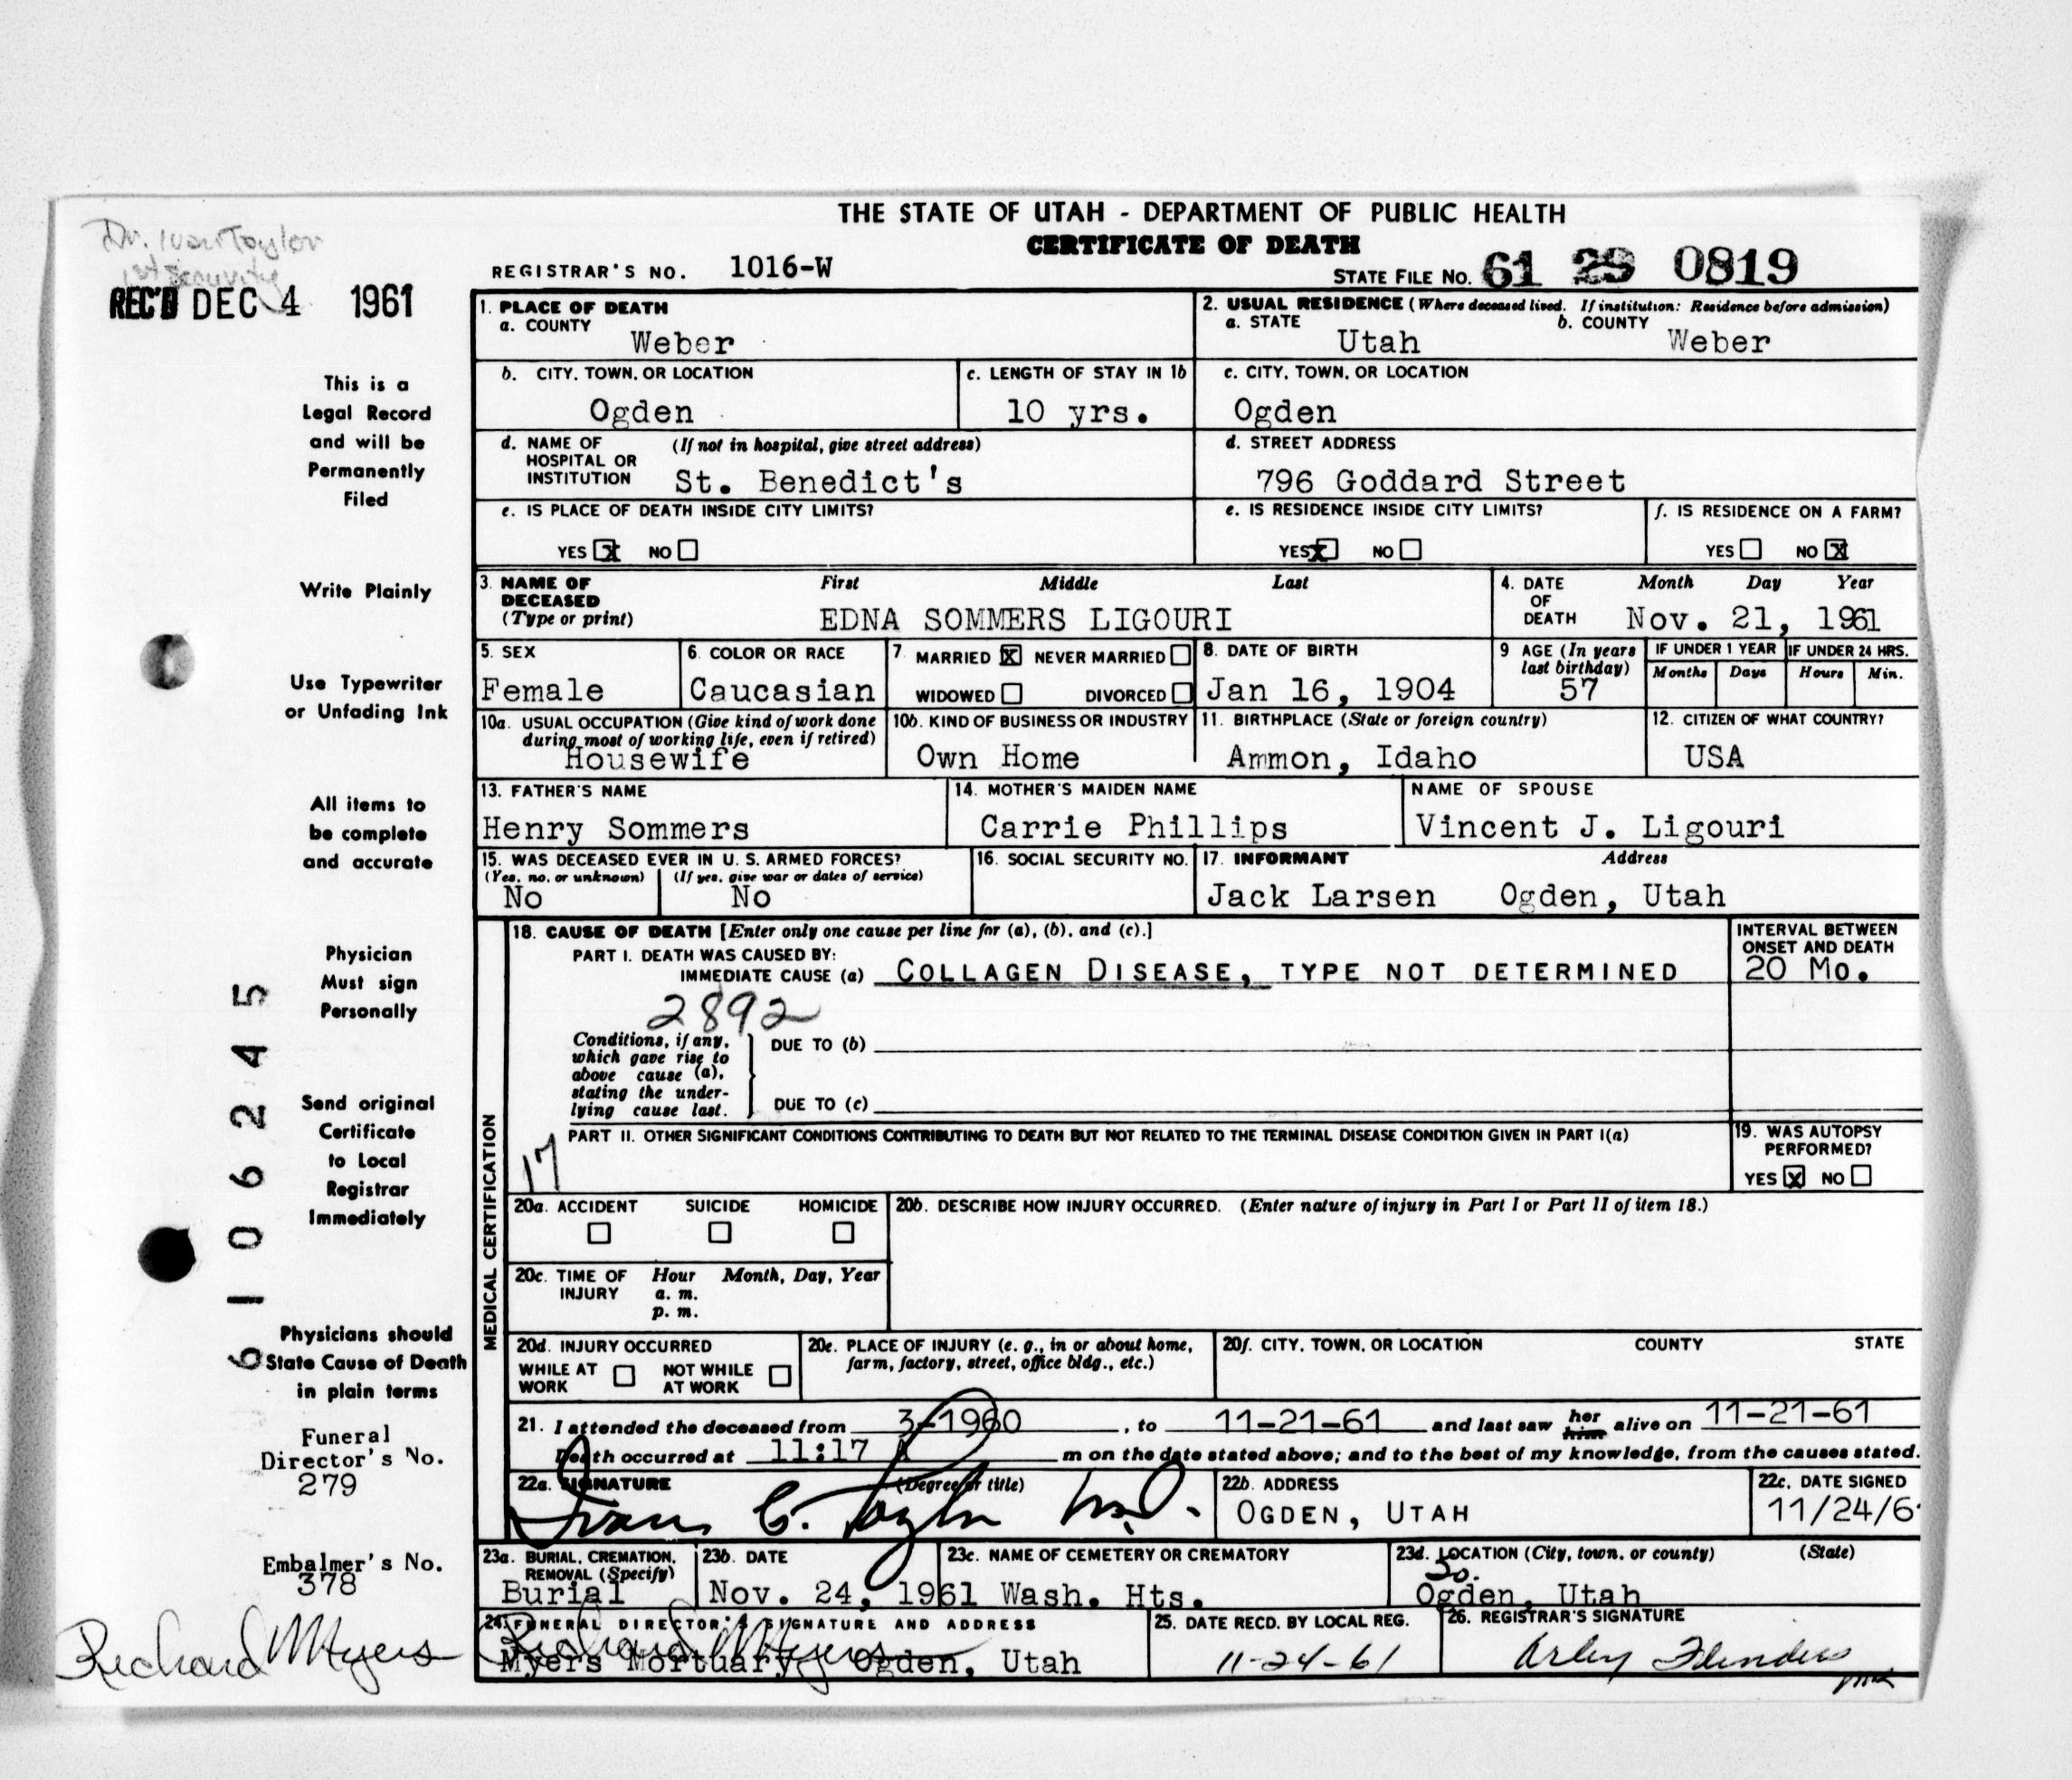 THE STATE OF UTAH - DEPARTMENT OF PUBLIC HEALTH
CERTIFICATE OF DEATH
Dr. Ivan Taylor
REGISTRAR'S NO. 1016-W
STATE FILE NO. 61 29 0819
REC'D DEC 4 1961
1. PLACE OF DEATH
a. COUNTY
Weber
2. USUAL RESIDENCE (Where deceased lived. If institution: Residence before admission)
a. STATE b. COUNTY
Utah Weber
b. CITY, TOWN, OR LOCATION
Ogden
c. LENGTH OF STAY IN 1b
10 yrs.
c. CITY, TOWN, OR LOCATION
Ogden
d. NAME OF (If not in hospital, give street address)
HOSPITAL OR
INSTITUTION St. Benedict's
d. STREET ADDRESS
796 Goddard Street
e. IS PLACE OF DEATH INSIDE CITY LIMITS?
YES X NO
e. IS RESIDENCE INSIDE CITY LIMITS?
YES X NO
f. IS RESIDENCE ON A FARM?
YES NO X
3. NAME OF DECEASED (Type or print)
First Middle Last
EDNA SOMMERS LIGOURI
4. DATE OF DEATH
Month Day Year
Nov. 21, 1961
5. SEX
Female
6. COLOR OR RACE
Caucasian
7. MARRIED X NEVER MARRIED
WIDOWED DIVORCED
8. DATE OF BIRTH
Jan 16, 1904
9 AGE (In years last birthday)
57
IF UNDER 1 YEAR
Months Days
IF UNDER 24 HRS.
Hours Min.
10a. USUAL OCCUPATION (Give kind of work done
during most of working life, even if retired)
Housewife
10b. KIND OF BUSINESS OR INDUSTRY
Own Home
11. BIRTHPLACE (State or foreign country)
Ammon, Idaho
12. CITIZEN OF WHAT COUNTRY?
USA
13. FATHER'S NAME
Henry Sommers
14. MOTHER'S MAIDEN NAME
Carrie Phillips
NAME OF SPOUSE
Vincent J. Ligouri
15. WAS DECEASED EVER IN U. S. ARMED FORCES?
(Yes, no, or unknown) (If yes, give war or dates of service)
No No
16. SOCIAL SECURITY NO.
17. INFORMANT Address
Jack Larsen Ogden, Utah
MEDICAL CERTIFICATION
18. CAUSE OF DEATH [Enter only one cause per line for (a), (b), and (c).]
PART I. DEATH WAS CAUSED BY:
IMMEDIATE CAUSE (a) COLLAGEN DISEASE, TYPE NOT DETERMINED
INTERVAL BETWEEN
ONSET AND DEATH
20 Mo.
2892
Conditions, if any,
which gave rise to
above cause (a),
stating the under-
lying cause last.
DUE TO (b)
DUE TO (c)
PART II. OTHER SIGNIFICANT CONDITIONS CONTRIBUTING TO DEATH BUT NOT RELATED TO THE TERMINAL DISEASE CONDITION GIVEN IN PART I(a)
17
19. WAS AUTOPSY
PERFORMED?
YES X NO
20a. ACCIDENT SUICIDE HOMICIDE
20b. DESCRIBE HOW INJURY OCCURRED. (Enter nature of injury in Part I or Part II of item 18.)
20c. TIME OF INJURY
Hour Month, Day, Year
a. m.
p. m.
20d. INJURY OCCURRED
WHILE AT WORK NOT WHILE AT WORK
20e. PLACE OF INJURY (e. g., in or about home,
farm, factory, street, office bldg., etc.)
20f. CITY, TOWN, OR LOCATION COUNTY STATE
21. I attended the deceased from 3-1960, to 11-21-61 and last saw her him alive on 11-21-61
Death occurred at 11:17 A m on the date stated above; and to the best of my knowledge, from the causes stated.
22a. SIGNATURE (Degree or title)
Ivan C. Taylor M.D.
22b. ADDRESS
OGDEN, UTAH
22c. DATE SIGNED
11/24/6
23a. BURIAL, CREMATION,
REMOVAL (Specify)
Burial
23b. DATE
Nov. 24, 1961
23c. NAME OF CEMETERY OR CREMATORY
Wash. Hts.
23d. LOCATION (City, town, or county) (State)
So.
Ogden, Utah
24. FUNERAL DIRECTOR'S SIGNATURE AND ADDRESS
Richard M Myers
Myers Mortuary, Ogden, Utah
25. DATE RECD. BY LOCAL REG.
11-24-61
26. REGISTRAR'S SIGNATURE
Arley Flinders
This is a
Legal Record
and will be
Permanently
Filed
Write Plainly
Use Typewriter
or Unfading Ink
All items to
be complete
and accurate
Physician
Must sign
Personally
Send original
Certificate
to Local
Registrar
Immediately
Physicians should
State Cause of Death
in plain terms
6106245
Funeral
Director's No.
279
Embalmer's No.
378
Richard M Myers